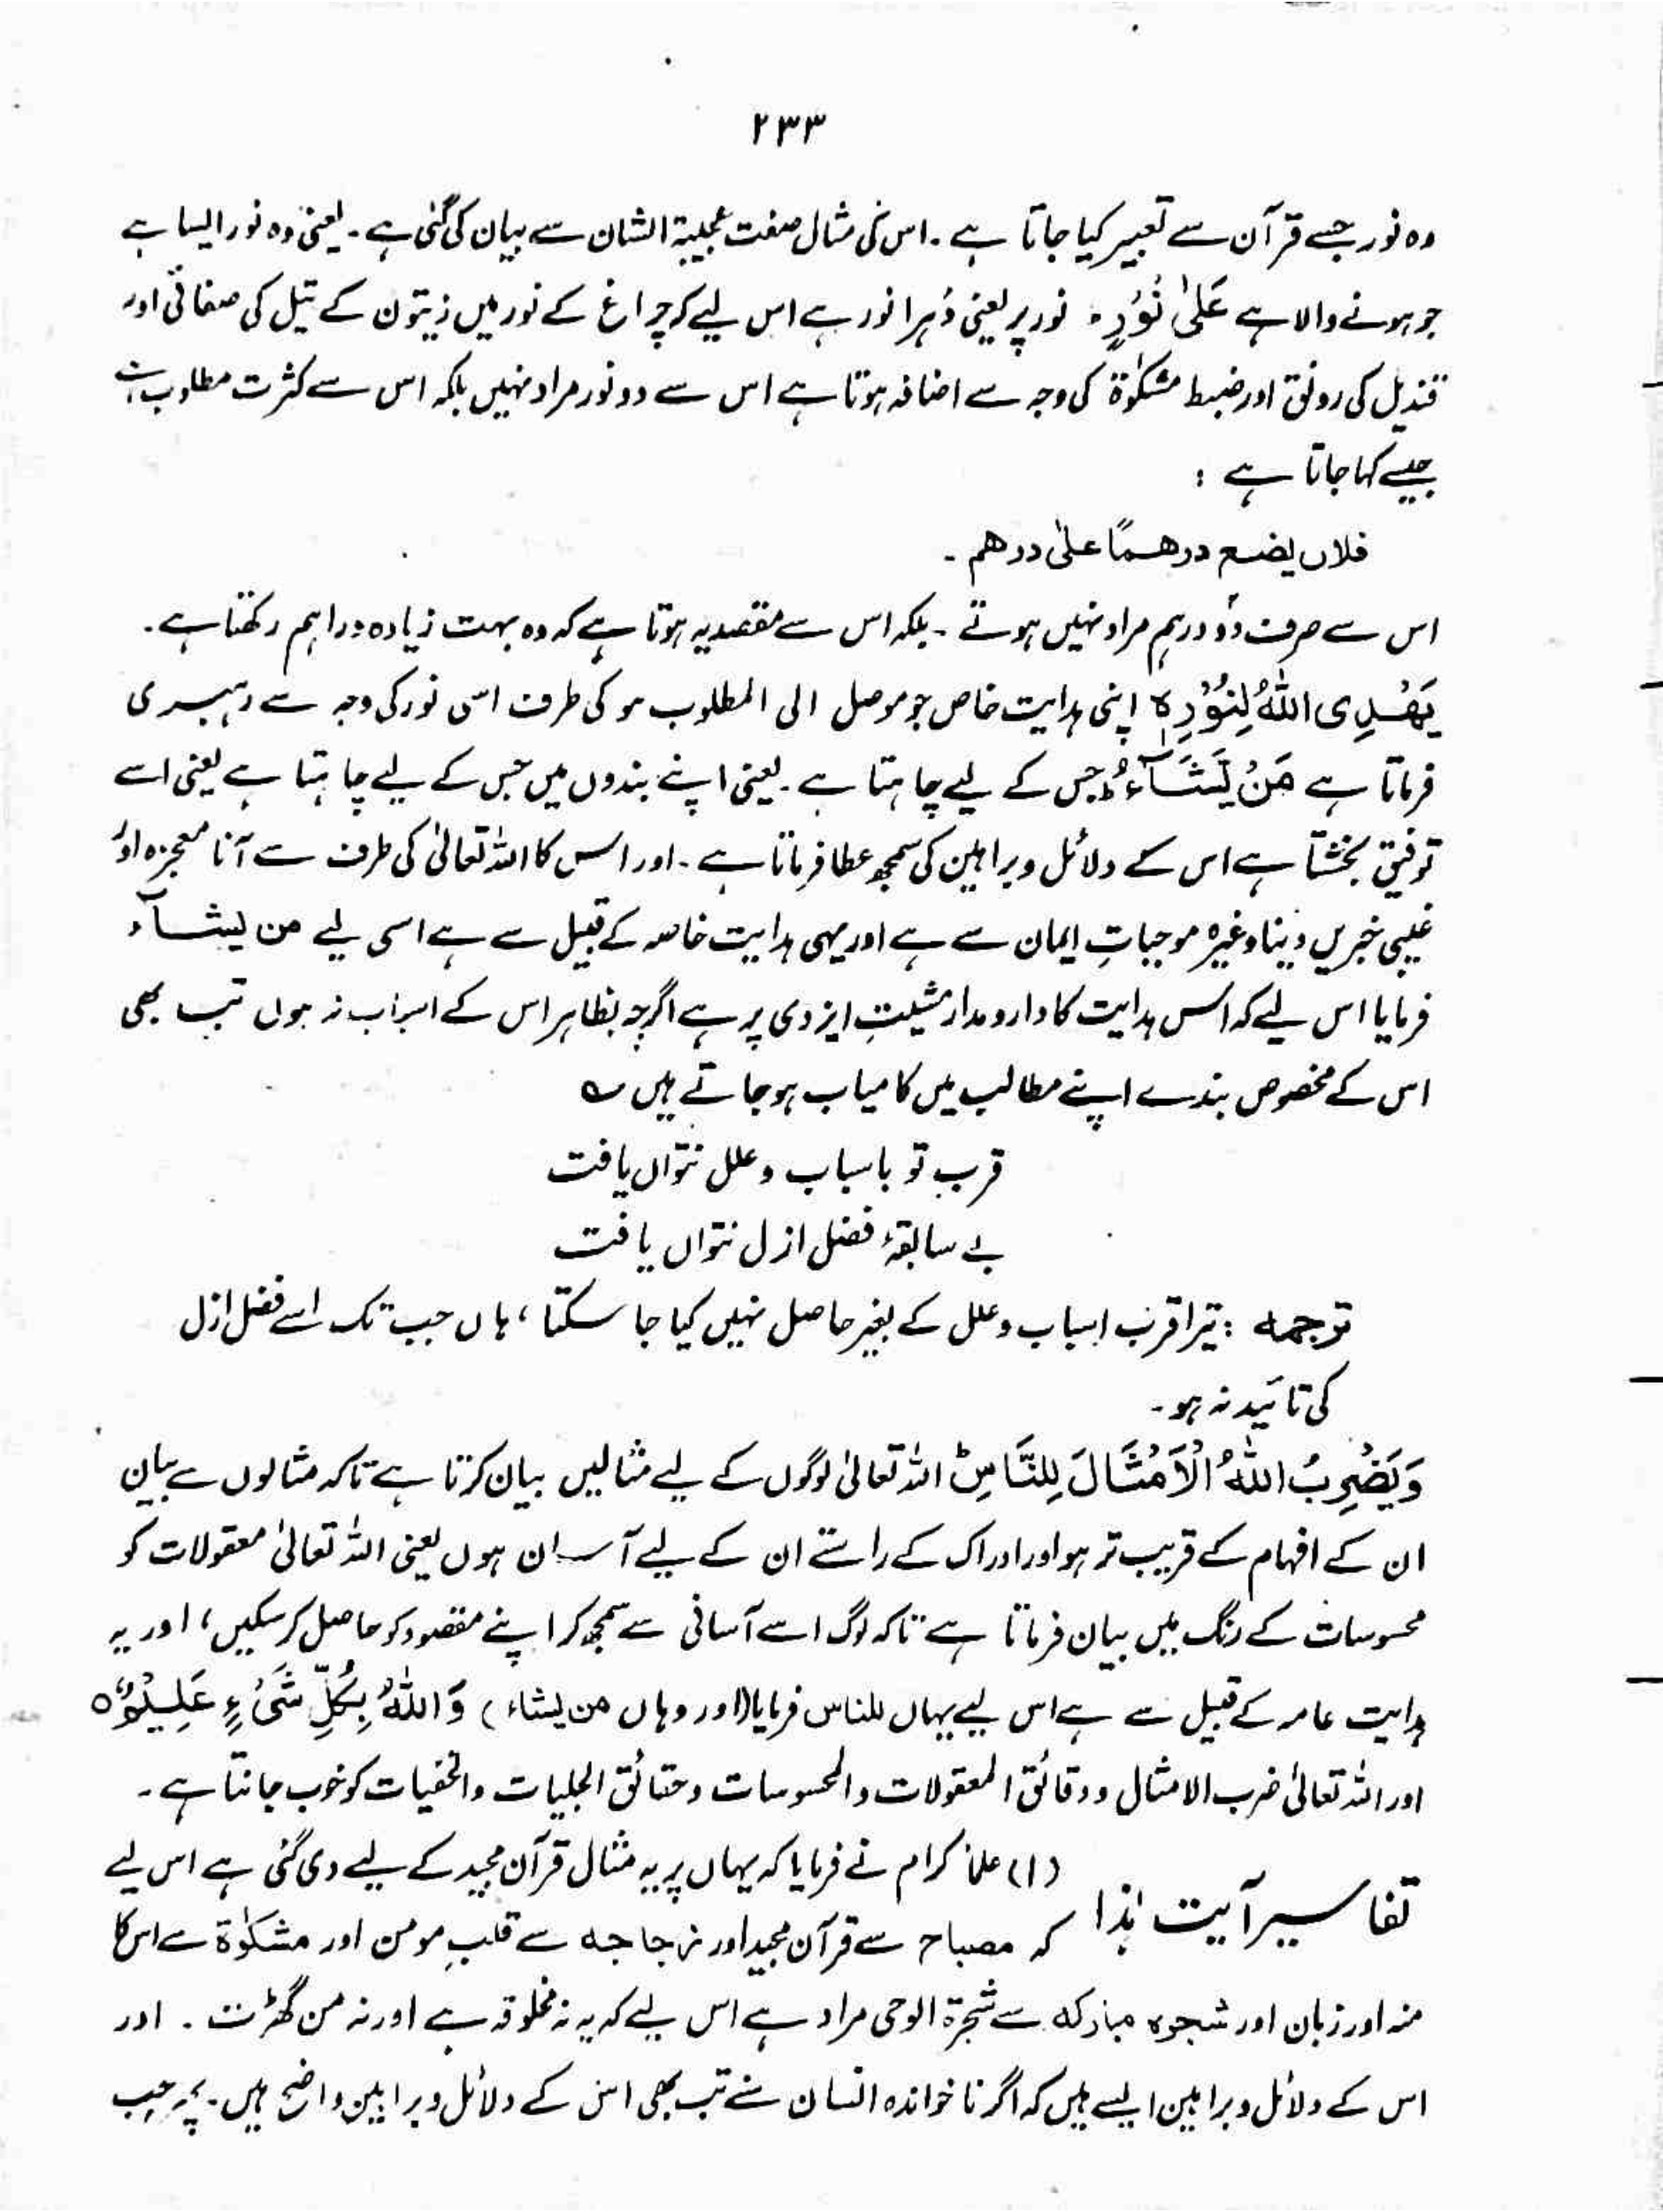 ۲۳۳
وہ نور جسے قرآن سے تعبیر کیا جاتا ہے ۔ اس کی مثال صفت عجیبۃ الشان سے بیان کی گئی ہے ۔ یعنی وہ نور ایسا ہے
جو ہونے والا ہے عَلٰی نُوْرٍ ؕ نور پر یعنی دُہرا نور ہے اس لیے کہ چراغ کے نور میں زیتون کے تیل کی صفائی اور
قندیل کی رونق اور ضبط مشکوٰۃ کی وجہ سے اضافہ ہوتا ہے اس سے دو نور مراد نہیں بلکہ اس سے کثرت مطلوب ہے
جیسے کہا جاتا ہے :
فلان یضع درھمًا علیٰ درھم ۔
اس سے صرف دو درہم مراد نہیں ہوتے ۔ بلکہ اس سے مقصد یہ ہوتا ہے کہ وہ بہت زیادہ دراہم رکھتا ہے ۔
یَھْدِی اللّٰہُ لِنُوْرِہٖ اپنی ہدایت خاص جو موصل الی المطلوب ہو کی طرف اسی نور کی وجہ سے رہبری
فرماتا ہے مَنْ یَّشَآءُ ؕ جس کے لیے چاہتا ہے ۔ یعنی اپنے بندوں میں جس کے لیے چاہتا ہے یعنی اسے
توفیق بخشتا ہے اس کے دلائل و براہین کی سمجھ عطا فرماتا ہے ۔ اور اس کا اللہ تعالیٰ کی طرف سے آنا معجزہ اور
غیبی خبریں دینا وغیرہ موجباتِ ایمان سے ہے اور یہی ہدایت خاصہ کے قبیل سے ہے اسی لیے من یشآء
فرمایا اس لیے کہ اس ہدایت کا دارومدار مشیتِ ایزدی پر ہے اگرچہ بظاہر اس کے اسباب نہ ہوں تب بھی
اس کے مخصوص بندے اپنے مطالب میں کامیاب ہو جاتے ہیں ؎
قرب تو باسباب و علل نتواں یافت
بے سابقۂ فضل ازل نتواں یافت
ترجمہ : تیرا قرب اسباب و علل کے بغیر حاصل نہیں کیا جا سکتا ، ہاں جب تک اسے فضل ازل
کی تائید نہ ہو ۔
وَیَضْرِبُ اللّٰہُ الْاَمْثَالَ لِلنَّاسِ ؕ اللہ تعالیٰ لوگوں کے لیے مثالیں بیان کرتا ہے تاکہ مثالوں سے بیان
ان کے افہام کے قریب تر ہو اور ادراک کے راستے ان کے لیے آسان ہوں یعنی اللہ تعالیٰ معقولات کو
محسوسات کے رنگ میں بیان فرماتا ہے تاکہ لوگ اسے آسانی سے سمجھ کر اپنے مقصود کو حاصل کر سکیں ، اور یہ
ہدایت عامہ کے قبیل سے ہے اس لیے یہاں للناس فرمایا ( اور وہاں من یشاء ) وَاللّٰہُ بِکُلِّ شَیْءٍ عَلِیْمٌ ۝
اور اللہ تعالیٰ ضرب الامثال و دقائق المعقولات والمحسوسات و حقائق الجلیات والخفیات کو خوب جانتا ہے ۔
تفاسیر آیت ہٰذا (۱) علماء کرام نے فرمایا کہ یہاں پر یہ مثال قرآن مجید کے لیے دی گئی ہے اس لیے
کہ مصباح سے قرآن مجید اور زجاجہ سے قلبِ مومن اور مشکوٰۃ سے اس کا
منہ اور زبان اور شجرہ مبارکہ سے شجرۃ الوحی مراد ہے اس لیے کہ یہ نہ مخلوقہ ہے اور نہ من گھڑت ۔ اور
اس کے دلائل و براہین ایسے ہیں کہ اگر ناخواندہ انسان سنے تب بھی اس کے دلائل و براہین واضح ہیں ۔ پھر جب